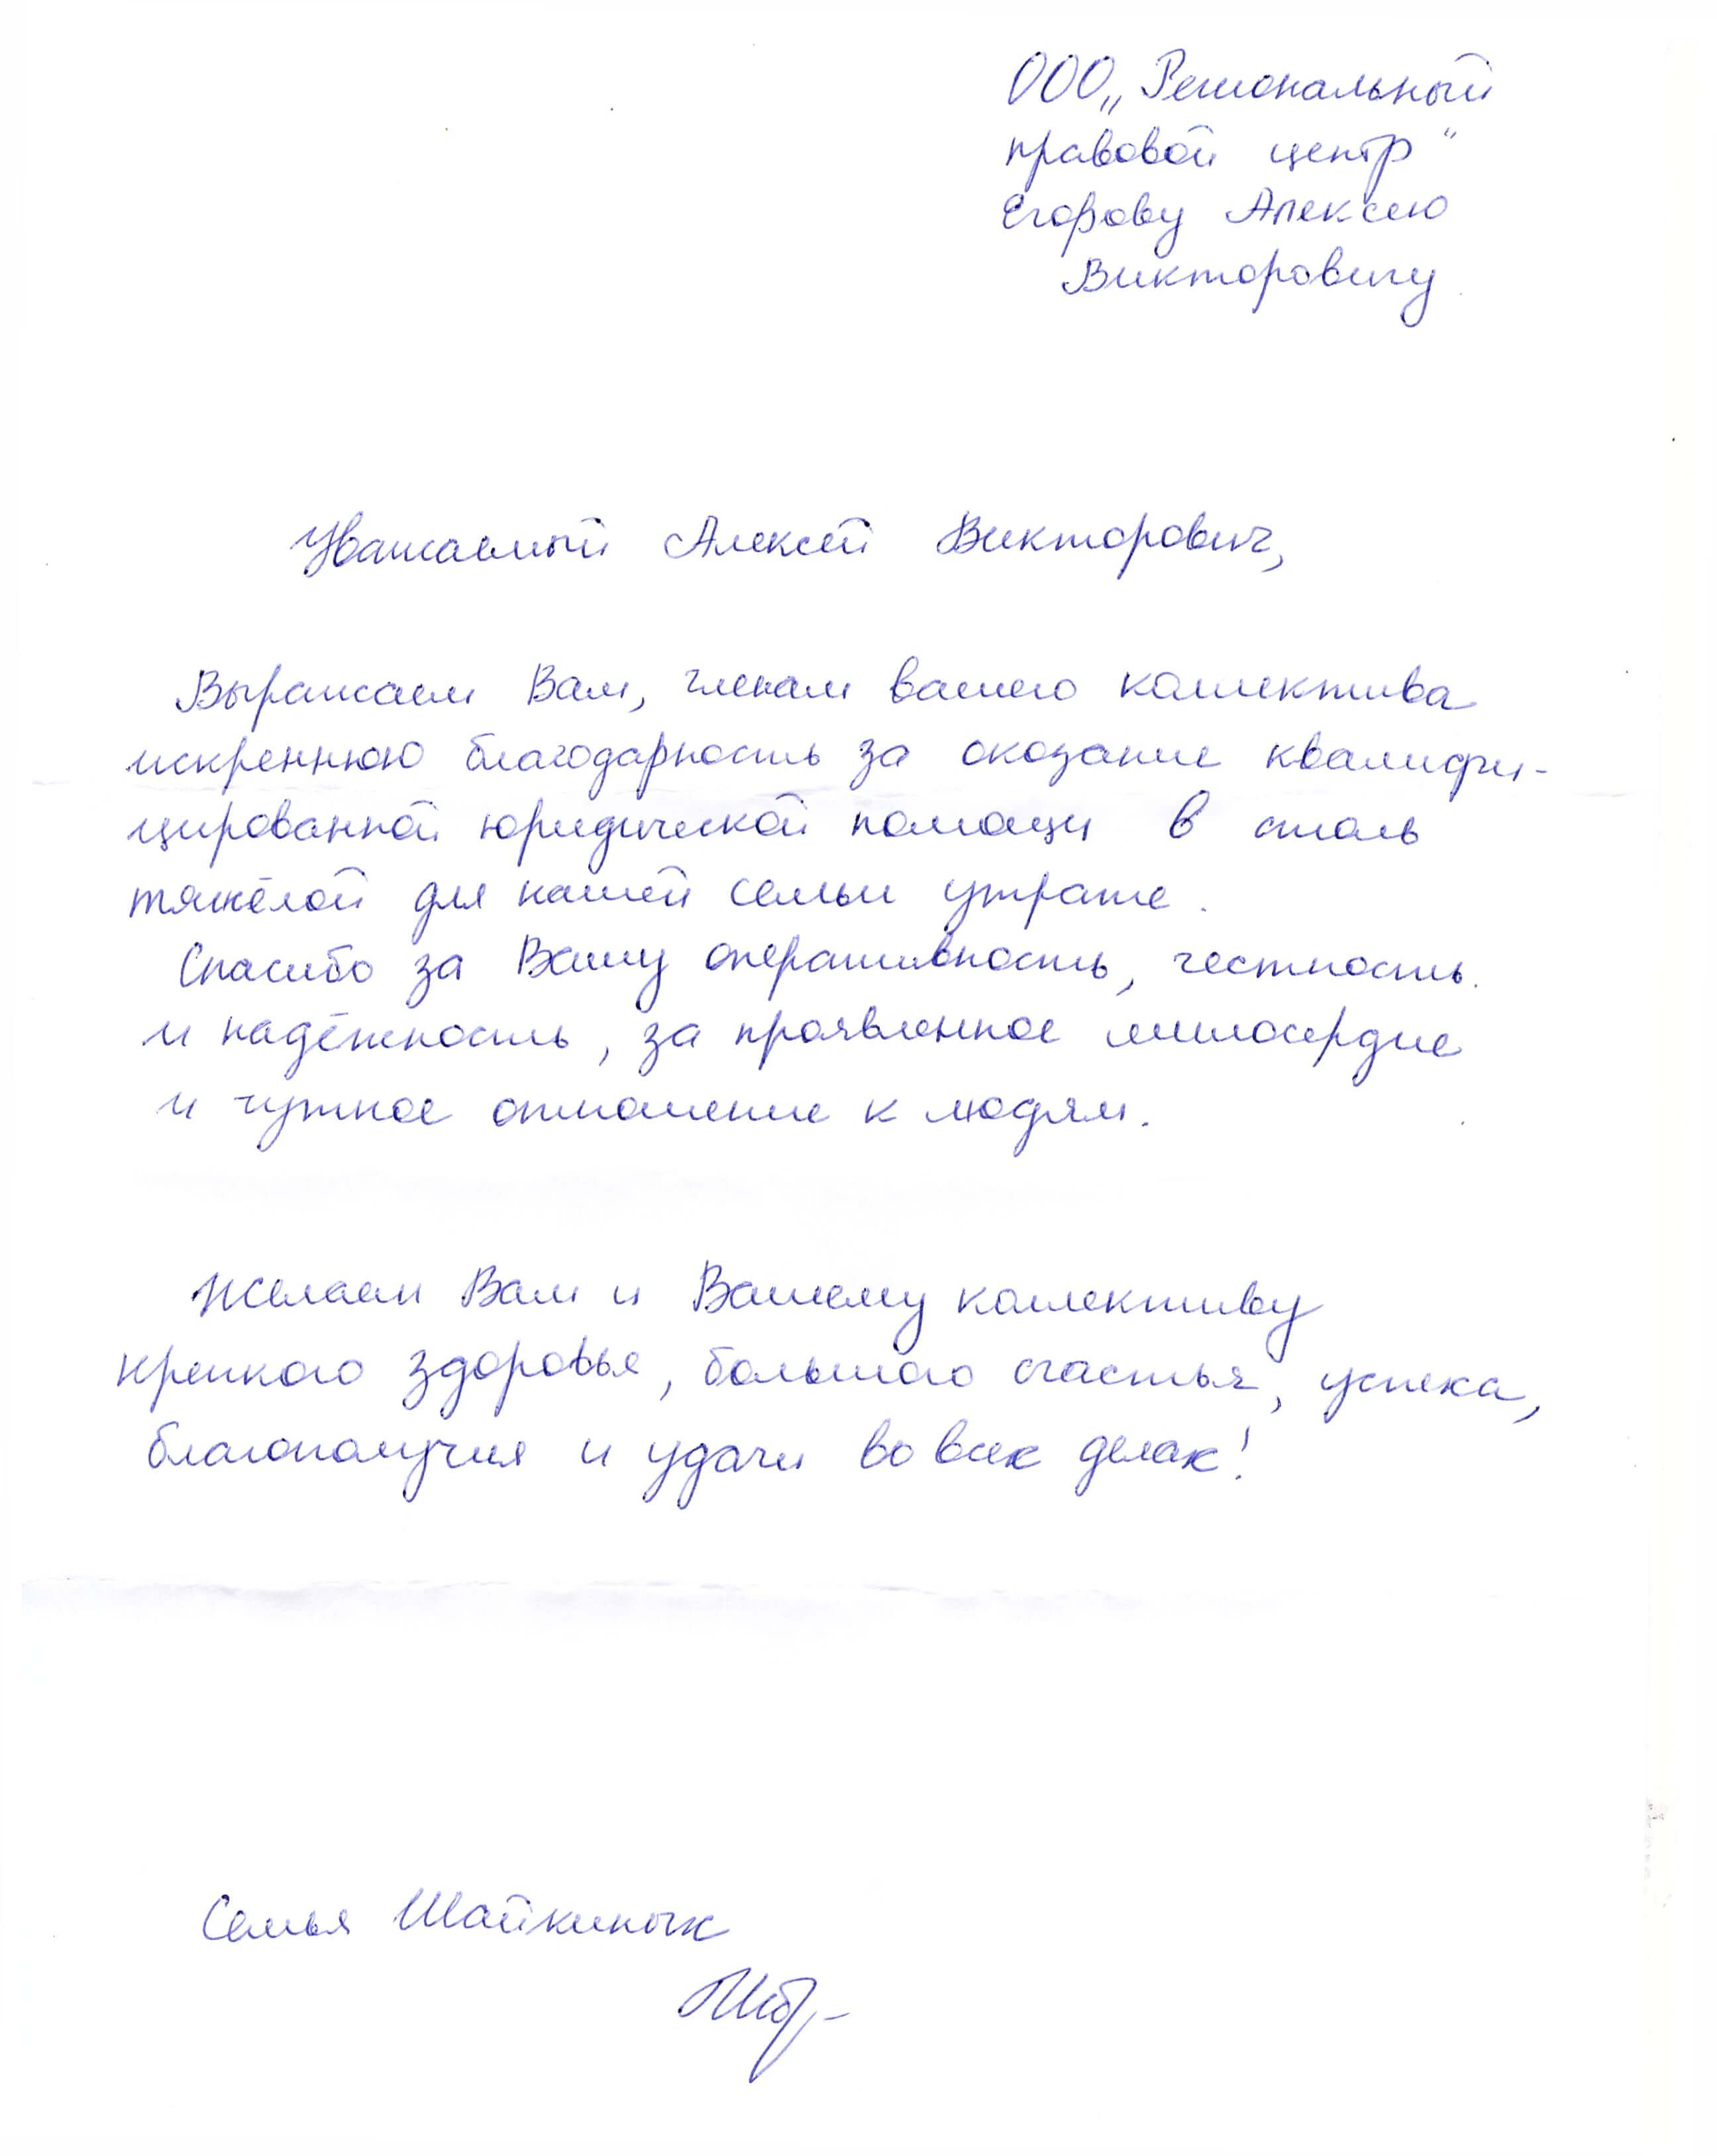 ООО „Региональный
правовой центр“
Егорову Алексею
Викторовичу
Уважаемый Алексей Викторович,
Выражаем Вам, членам вашего коллектива
искреннюю благодарность за оказание квалифи-
цированной юридической помощи в столь
тяжёлой для нашей семьи утрате.
Спасибо за Вашу оперативность, честность
и надёжность, за проявленное милосердие
и чуткое отношение к людям.
Желаем Вам и Вашему коллективу
крепкого здоровья, большого счастья, успеха,
благополучия и удачи во всех делах!
Семья Шайкиных